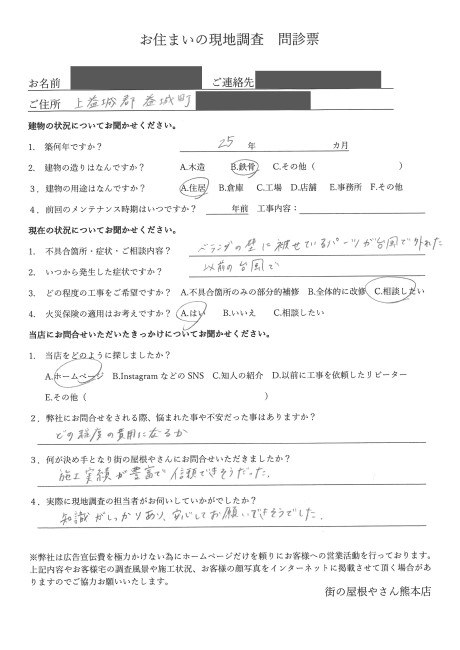 お住まいの現地調査　問診票
お名前　ご連絡先
ご住所　上益城郡 益城町
建物の状況についてお聞かせください。
1.　築何年ですか？　25 年　カ月
2.　建物の造りはなんですか？　A.木造　B.鉄骨　C.その他（　）
3．建物の用途はなんですか？　A.住居　B.倉庫　C.工場　D.店舗　E.事務所　F.その他
4．前回のメンテナンス時期はいつですか？　年前　工事内容：
現在の状況についてお聞かせください。
1.　不具合箇所・症状・ご相談内容？　ベランダの壁に被せているパーツが台風で外れた
2.　いつから発生した症状ですか？　以前の台風で
3．どの程度の工事をご希望ですか？　A.不具合箇所のみの部分的補修　B.全体的に改修　C.相談したい
4．火災保険の適用はお考えですか？　A.はい　B.いいえ　C.相談したい
当店にお問合せいただいたきっかけについてお聞かせください。
1.　当店をどのように探しましたか？
A.ホームページ　B.Instagram などの SNS　C.知人の紹介　D.以前に工事を依頼したリピーター
E.その他（　）
2．弊社にお問合せをされる際、悩まれた事や不安だった事はありますか？
どの程度の費用になるか
3．何が決め手となり街の屋根やさんにお問合せいただきましたか？
施工実績が豊富で信頼できそうだった.
4．実際に現地調査の担当者がお伺いしていかがでしたか？
知識がしっかりあり、安心してお願いできそうでした.
※弊社は広告宣伝費を極力かけない為にホームページだけを頼りにお客様への営業活動を行っております。
上記内容やお客様宅の調査風景や施工状況、お客様の顔写真をインターネットに掲載させて頂く場合があ
りますのでご協力お願いいたします。
街の屋根やさん熊本店